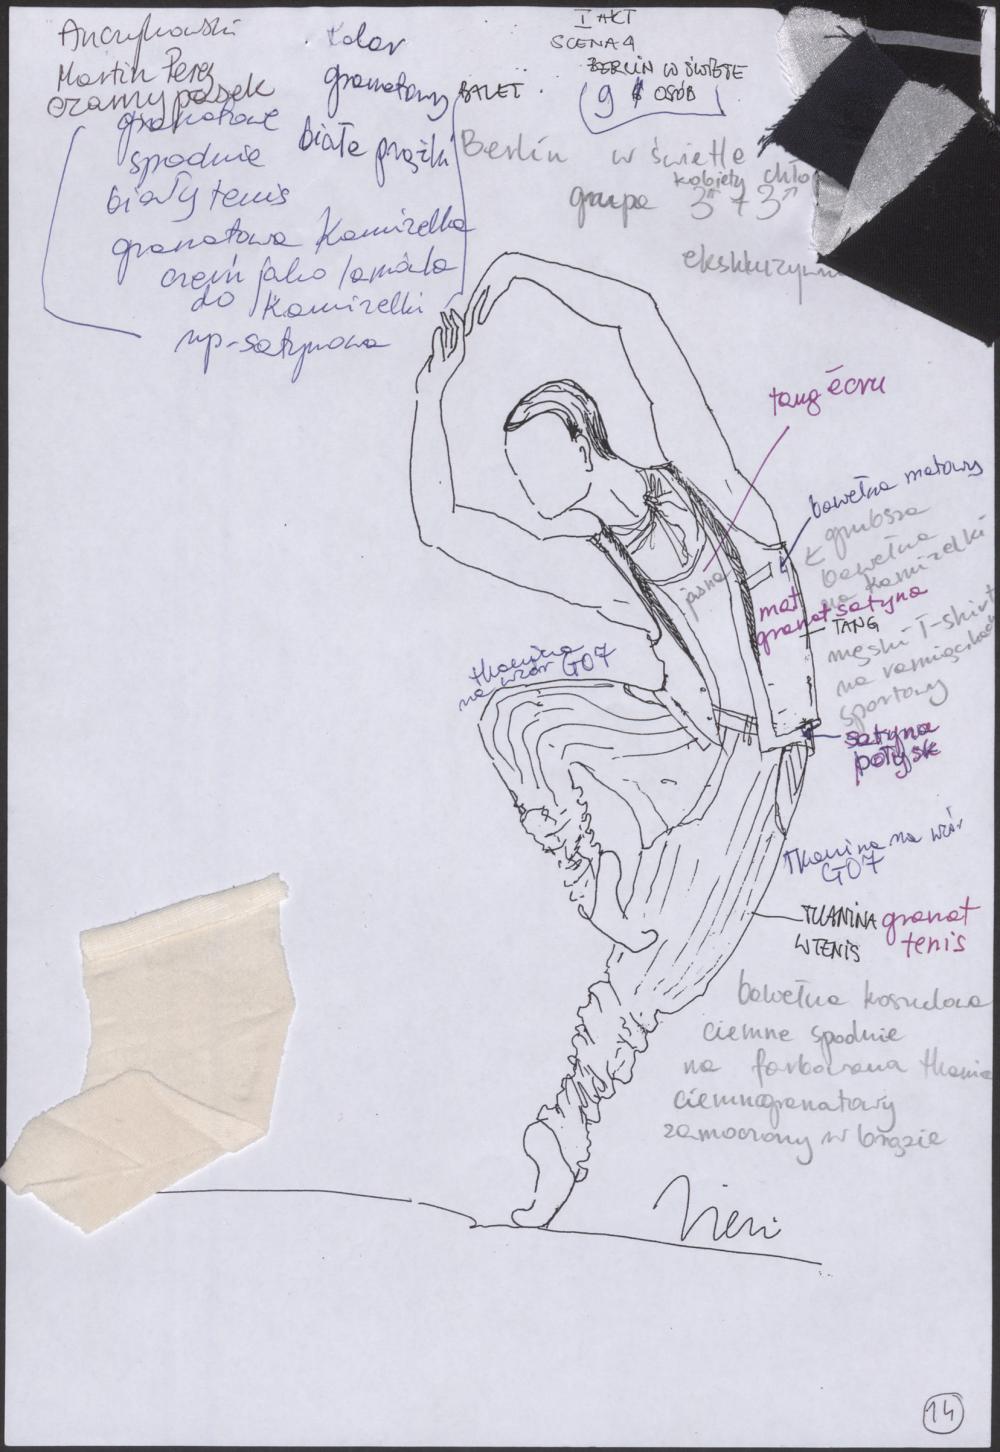 Anczykowski
Martin Perez
czarny pasek
granatowe
spodnie
biały tenis
granatowa Kamizelka
czerń jako lamówka
do Kamizelki
np-satynowa
Kolor
granatowy
białe prążki
I AKT
SCENA 4
BERLIN W ŚWIETLE
BALET
9 OSÓB
Berlin w świetle
kobiety
grupa 3 + 3
tang écru
bawełna matowy
grubsza
bawełna
na kamizelki
jasna
mat
granat satyna
TANG
męski T-shirt
na ramiączkach
sportowy
tkanina
na wzór G07
satyna
połysk
Tkanina na wzór
G07
TKANINA granat
W TENIS tenis
bawełna koszulowa
ciemne spodnie
na farbowana tkanina
ciemnogranatowy
zamoczony w brązie
14